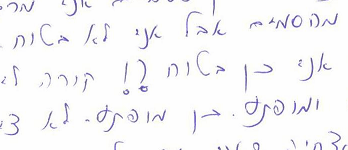 אני מר
מהסמים אבל אני לא בטוח
אני כן בטוח ?! קורה לי
ומופתע. כן מופתע. לא